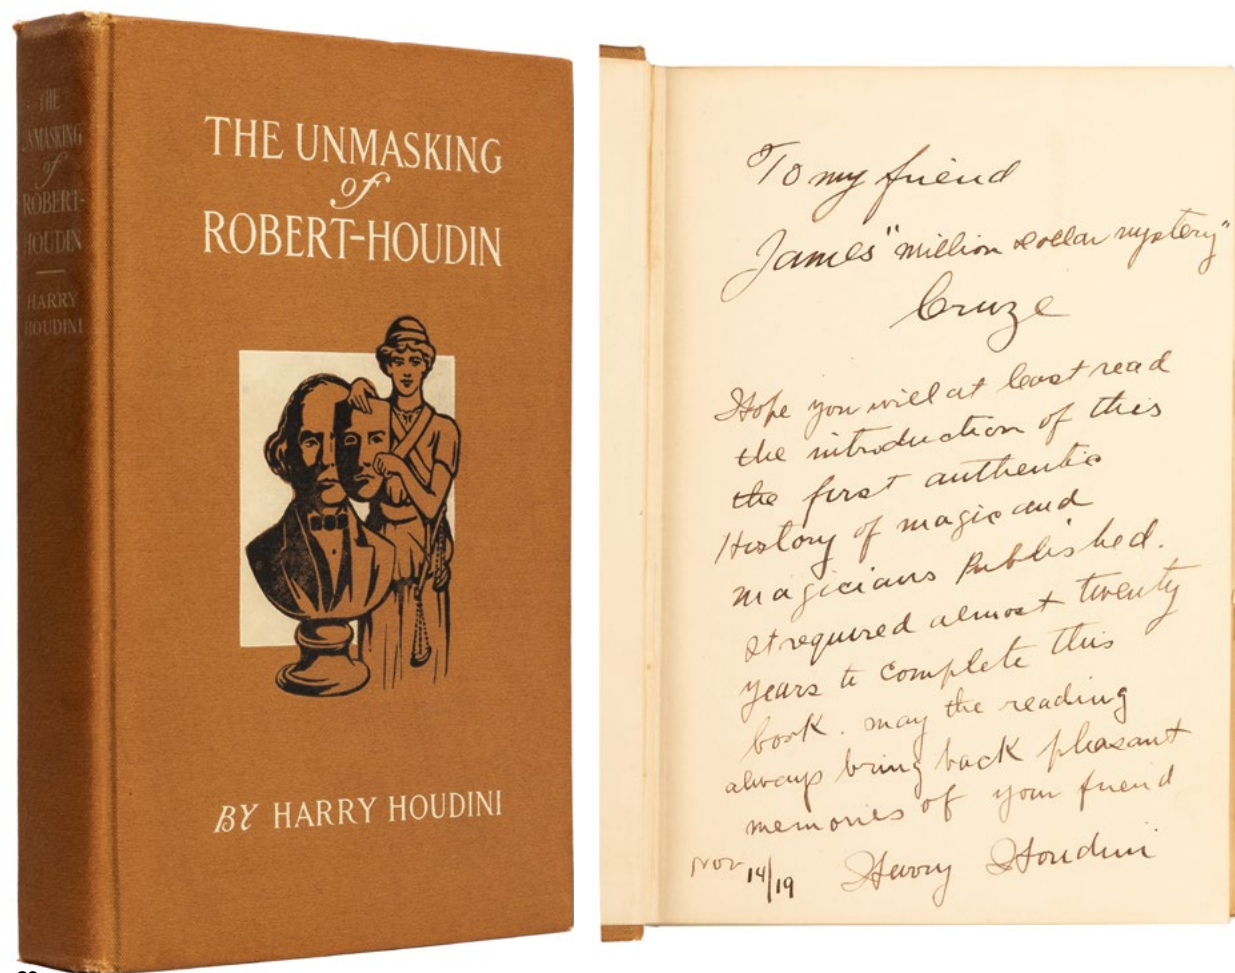 THE
UNMASKING
of
ROBERT-
HOUDIN
HARRY
HOUDINI
THE UNMASKING
of
ROBERT-HOUDIN
BY HARRY HOUDINI
To my friend
James "million dollar mystery"
Cruze
Hope you will at least read
the introduction of this
the first authentic
History of magic and
magicians Published.
It required almost twenty
years to complete this
book. may the reading
always bring back pleasant
memories of your friend
Nov 14/19 Harry Houdini